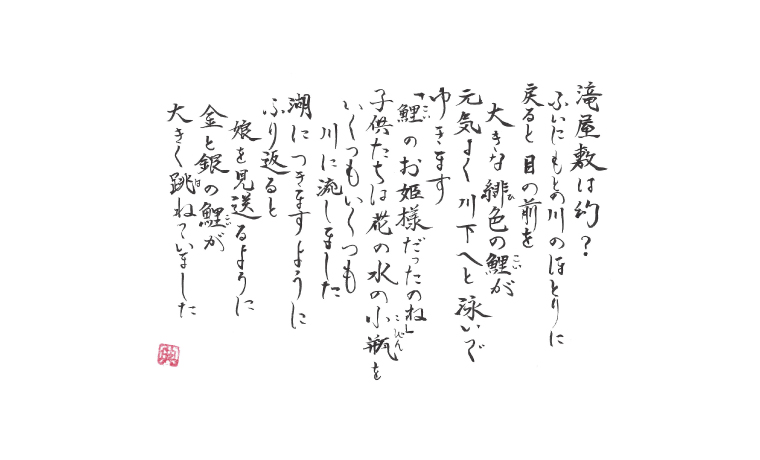 滝屋敷は幻？
ふいにもとの川のほとりに
戻ると目の前を
大きな緋色の鯉が
元気よく川下へと泳いで
ゆきます
「鯉のお姫様だったのね」
子供たちは花の水の小瓶を
いくつもいくつも
川に流しました
湖につきますように
ふり返ると
娘を見送るように
金と銀の鯉が
大きく跳ねていました